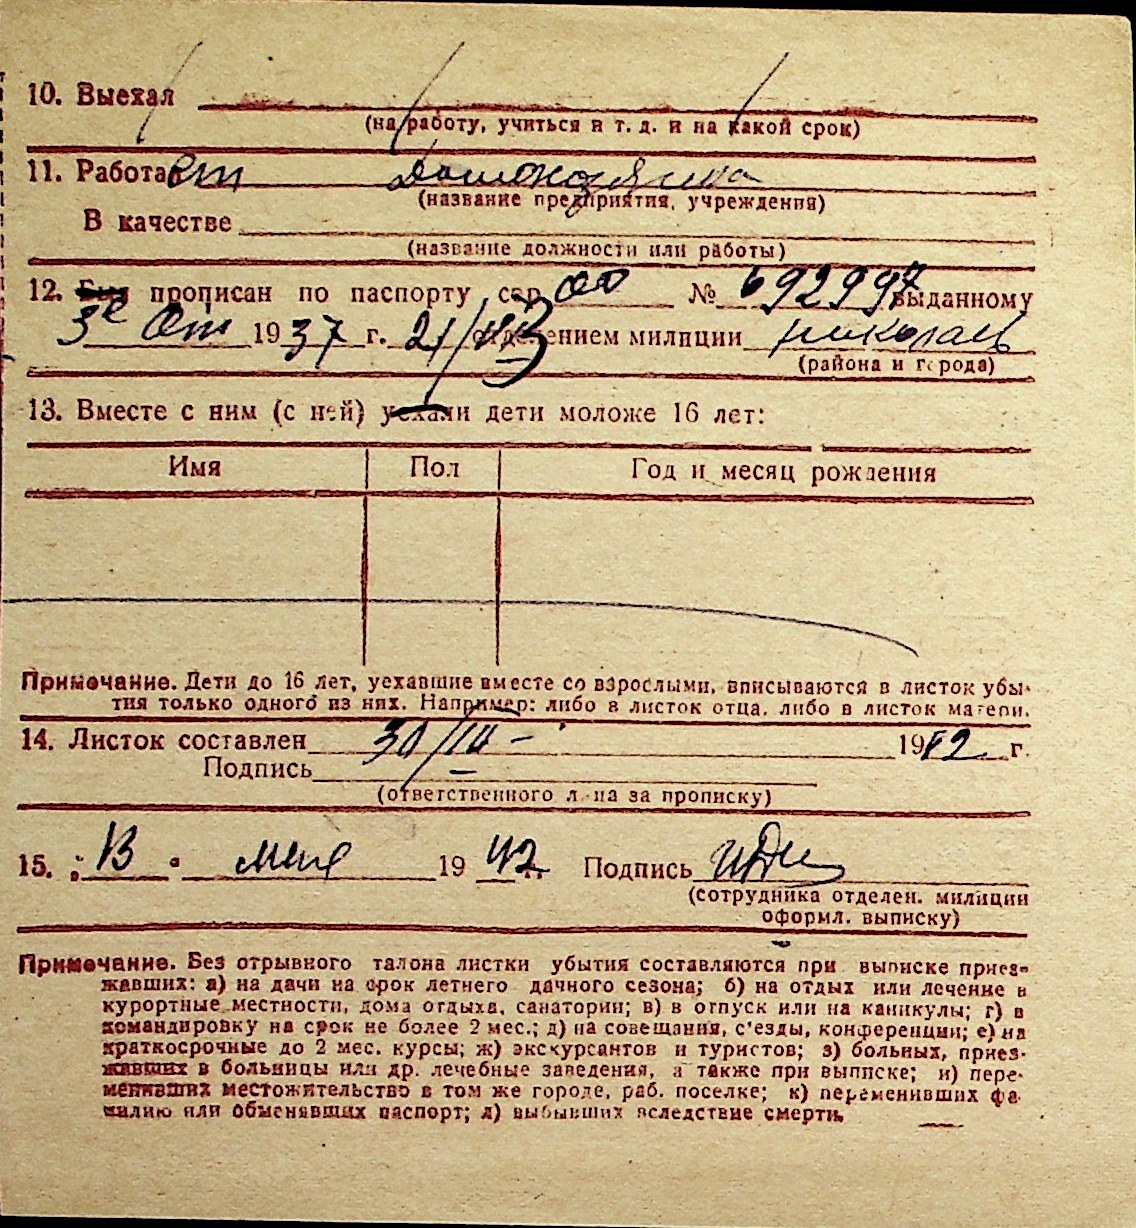 10. Выехал
(на работу, учиться и т. д. и на какой срок)
11. Работает домохозяйка
(название предприятия, учреждения)
В качестве
(название должности или работы)
12. Был прописан по паспорту сер. № 692997 выданному
3е От 1937 г. 21/ отделением милиции Николаев
(района и города)
13. Вместе с ним (с ней) уехали дети моложе 16 лет:
Имя Пол Год и месяц рождения
Примечание. Дети до 16 лет, уехавшие вместе со взрослыми, вписываются в листок убы-
тия только одного из них. Например: либо в листок отца, либо в листок матери.
14. Листок составлен 30/III - 1942 г.
Подпись
(ответственного лица за прописку)
15. „13" мая 1942 г. Подпись
(сотрудника отделен. милиции
оформл. выписку)
Примечание. Без отрывного талона листки убытия составляются при выписке приез-
жавших: а) на дачи на срок летнего дачного сезона; б) на отдых или лечение в
курортные местности, дома отдыха, санатории; в) в отпуск или на каникулы; г) в
командировку на срок не более 2 мес.; д) на совещания, с'езды, конференции; е) на
краткосрочные до 2 мес. курсы; ж) экскурсантов и туристов; з) больных, приез-
жавших в больницы или др. лечебные заведения, а также при выписке; и) пере-
менивших местожительство в том же городе, раб. поселке; к) переменивших фа-
милию или обменявших паспорт; л) выбывших вследствие смерти.